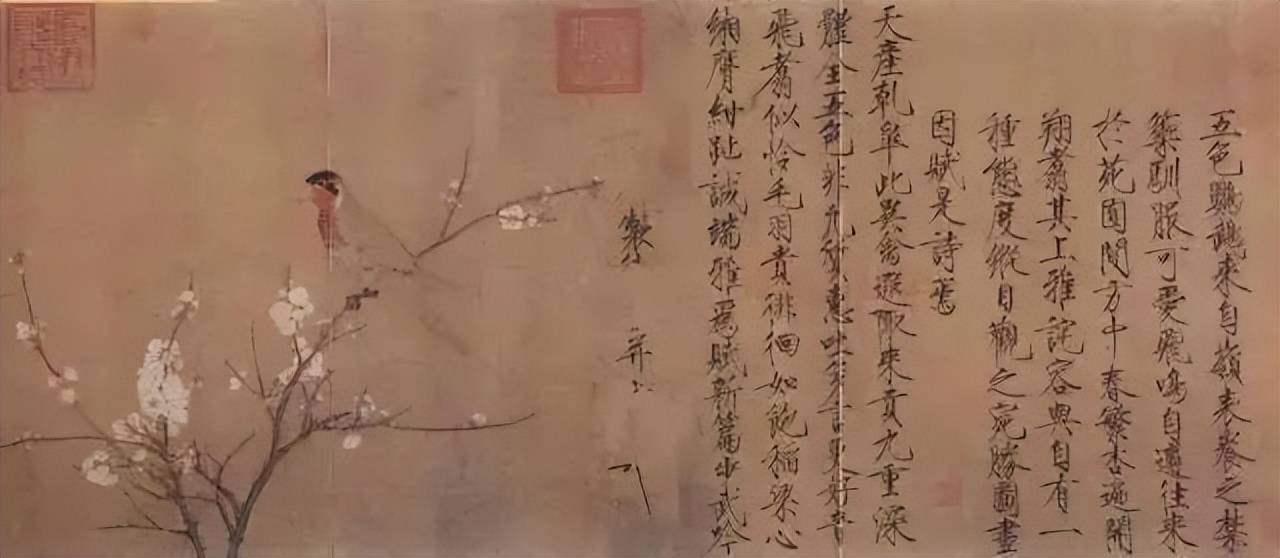 五色鸚鵡來自嶺表養之禁
籞馴服可愛飛鳴自適往來
於苑囿間方中春繁杏遍開
翔翥其上雅詫容與自有一
種態度縱目觀之宛勝圖畫
因賦是詩焉
天產乾皋此異禽遐陬來貢九重深
體全五色非凡質惠吐多言更好音
飛翥似憐毛羽貴徘徊如飽稻粱心
緗膺紺趾誠端雅為賦新篇步武吟
製并